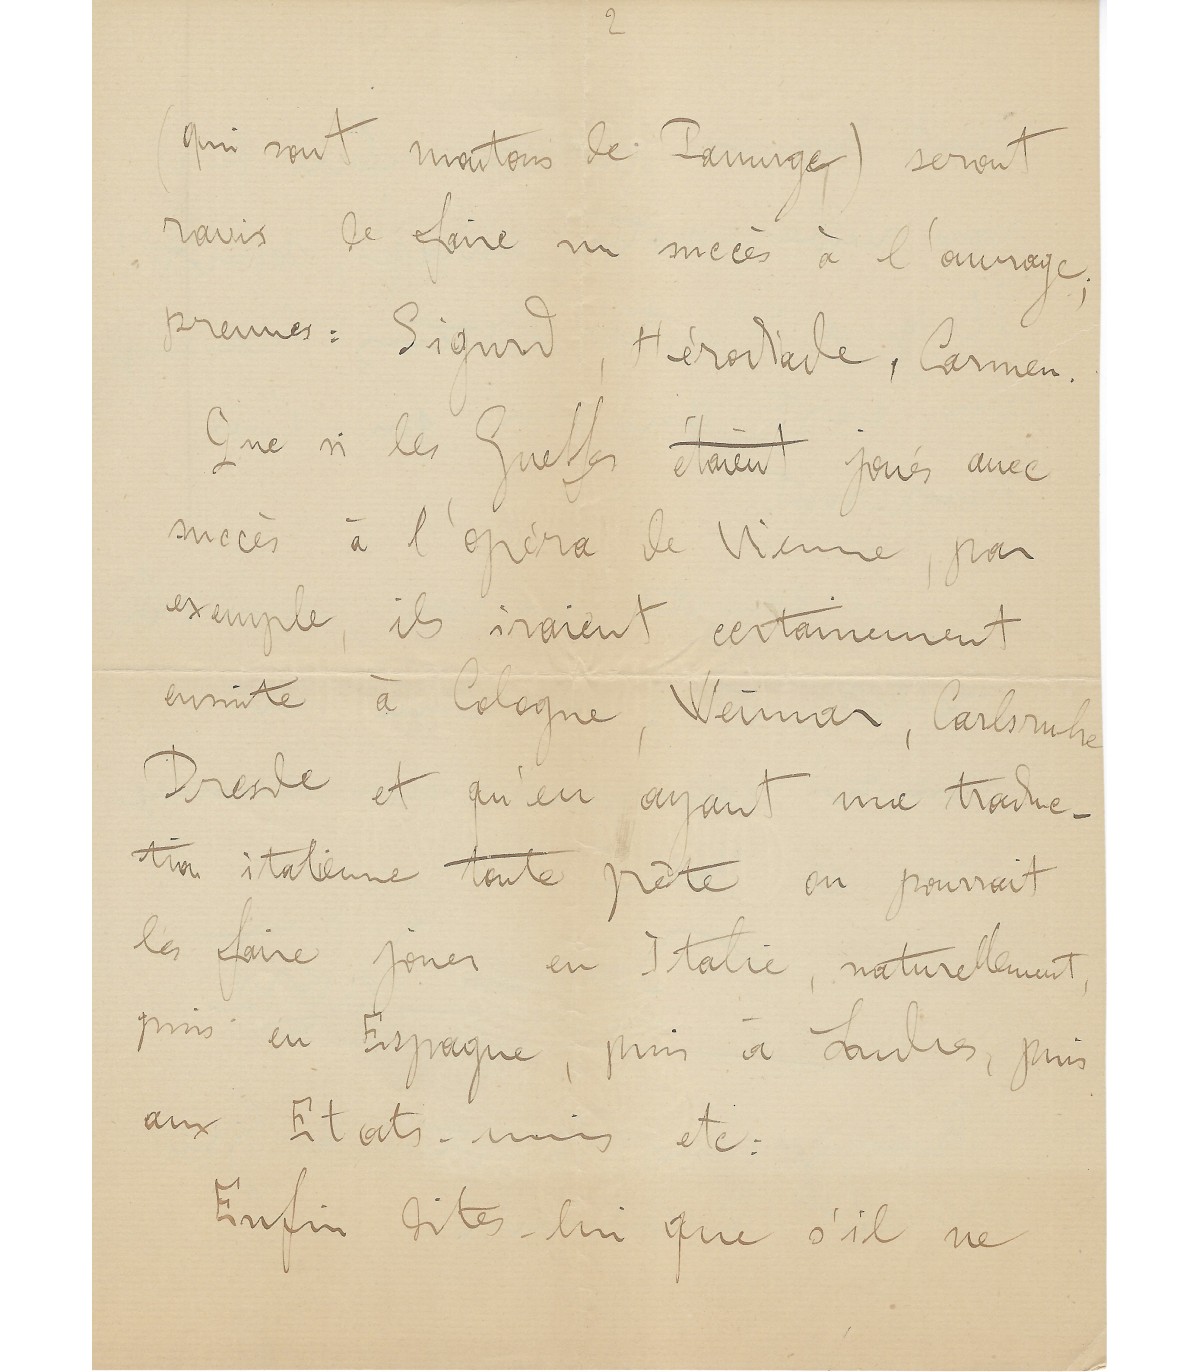 2
(qui sont moutons de Panurge) seront
ravis de faire un succès à l'ouvrage;
preuves: Sigurd, Hérodiade, Carmen.
Que si les Guelfes étaient joués avec
succès à l'opéra de Vienne, par
exemple, ils iraient certainement
ensuite à Cologne, Weimar, Carlsruhe
Dresde et qu'en ayant une traduc-
tion italienne toute prête on pourrait
les faire jouer en Italie, naturellement,
puis en Espagne, puis à Londres, puis
aux Etats-unis etc:
Enfin dites-lui que s'il ne